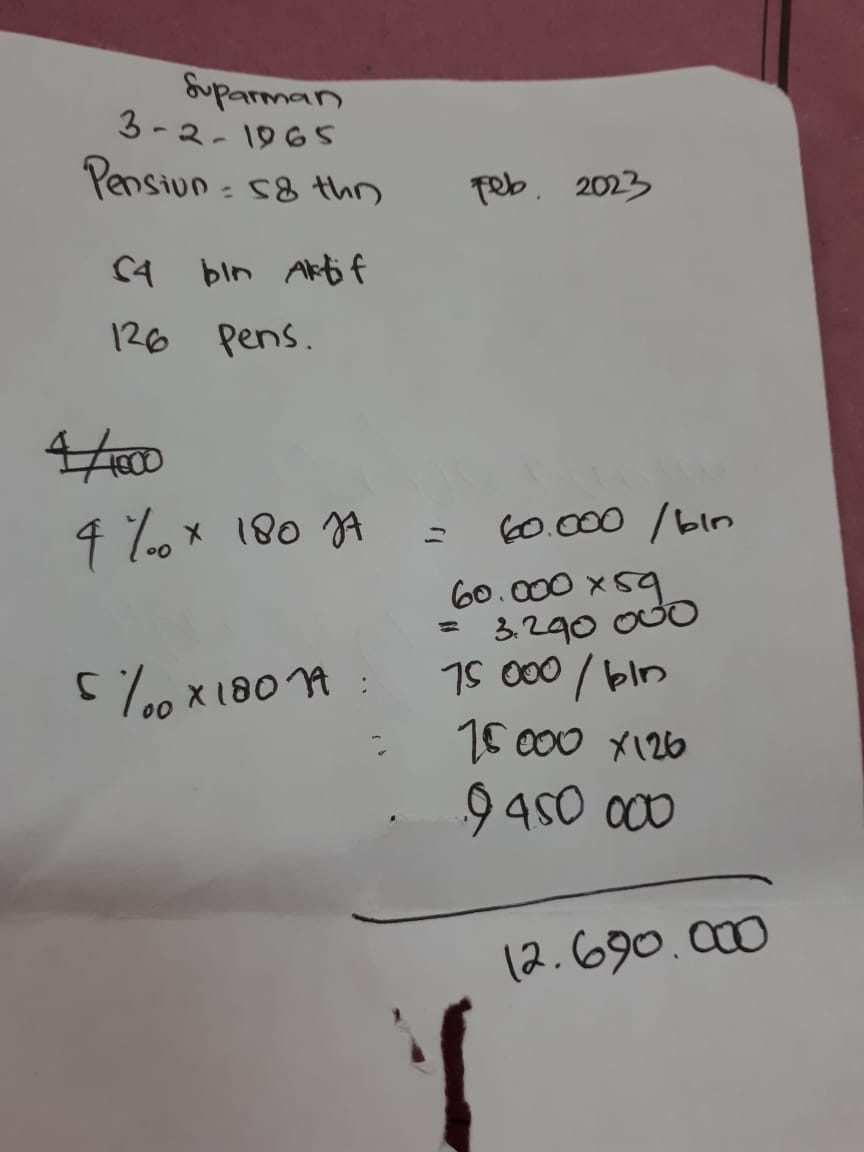 Suparman
3-2-1965
Pensiun = 58 thn Feb. 2023
54 bln Aktif
126 Pens.
4/1000
4‰ x 180 Jt = 60.000 /bln
60.000 x 54
= 3.240 000
5‰ x 180 Jt : 75 000 / bln
= 75 000 x 126
9 450 000
12.690.000